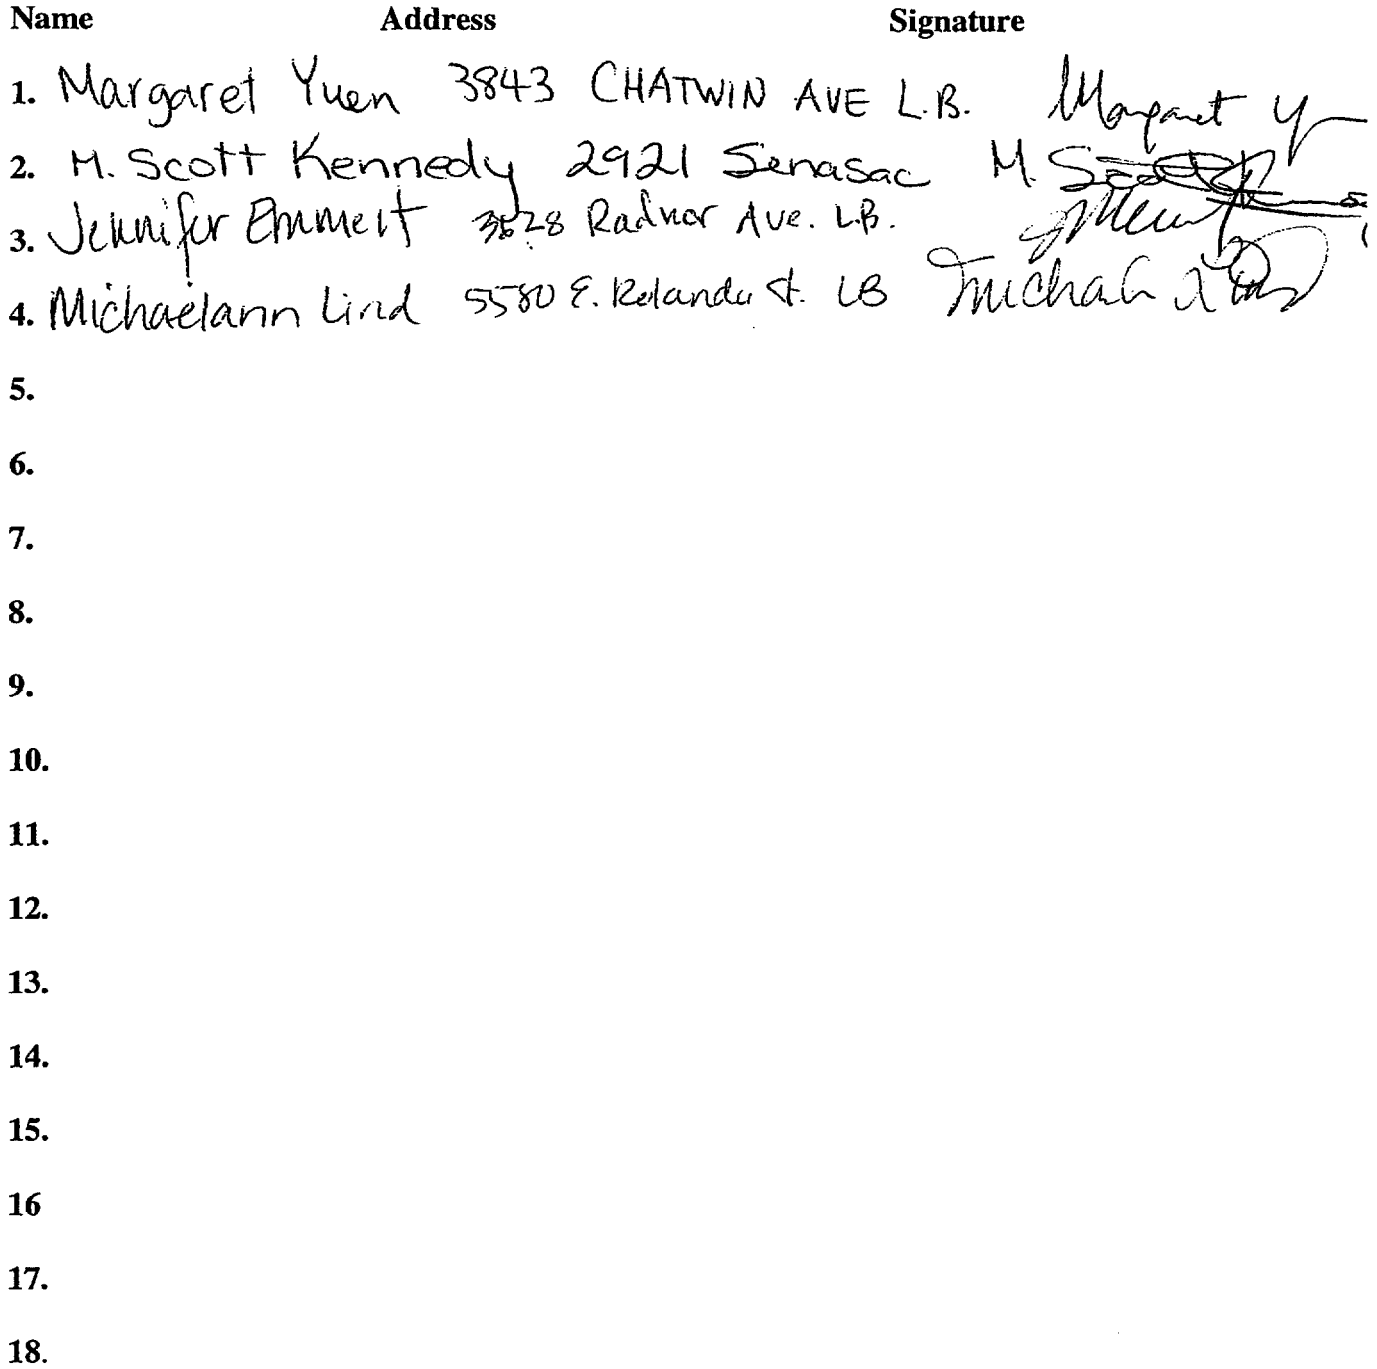 Name Address Signature
1. Margaret Yuen 3843 CHATWIN AVE L.B. Margaret Y
2. M. Scott Kennedy 2921 Senasac M. Scott
3. Jennifer Emmert Radnor Ave. L.B.
4. Michaelann Lind 5580 E. Rolanda St. LB
5.
6.
7.
8.
9.
10.
11.
12.
13.
14.
15.
16
17.
18.